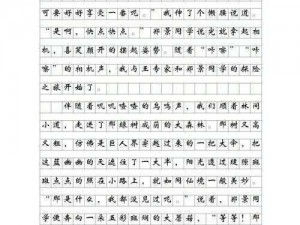 可要好好享受一番呢。”我伸了个懒腰说道。
“是啊，快点快点。”郑景同学说完就拿起相
机，喜笑颜开的摆起姿势。随着“咔嚓”“咔
嚓”的相机声，我与王专家和郑景同学的探险
之旅开始了。
伴随着叽叽喳喳的鸟鸣声，我们顺着林间
小道，走进了郁绿树成荫的大森林。那树又高
又粗，仿佛是巨人界牵过来的一个人梯，把
这蓝幽幽的天遮住了一大半，阳光透过缝斑
斑点点的照在小路上，犹如同仙境一般美妙。
“那是什么，我都没见过呢。”说着，郑景同
学便奔向一朵五彩斑斓的大蘑菇，“等等！那